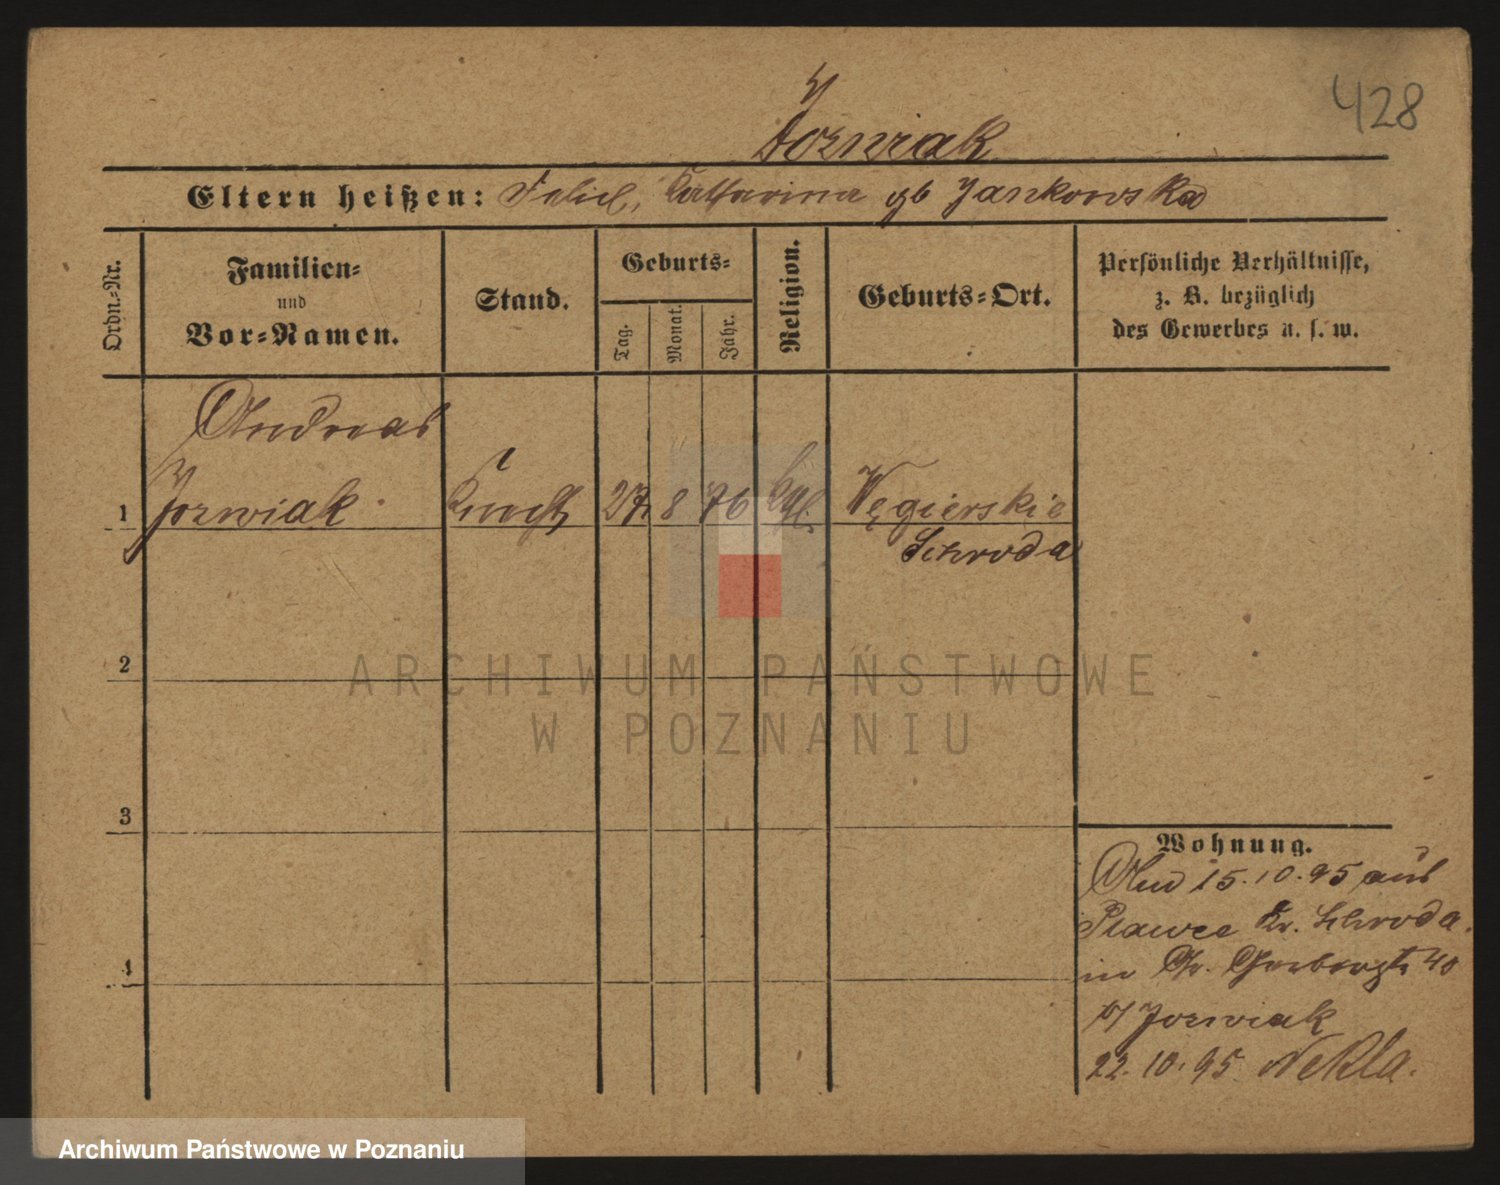 428
Jozwiak
Eltern heißen: Felix, Katharina gb Jankowska
Ordn.-Nr.
Familien-
und
Vor-Namen.
Stand.
Geburts-
Tag.
Monat.
Jahr.
Religion.
Geburts-Ort.
Persönliche Verhältnisse,
z. B. bezüglich
des Gewerbes u. s. w.
Andreas
1 Jozwiak Knecht 27 8 76 kath. Węgierskie
Schroda
2
3
4
Wohnung.
15.10.95 aus
Plawce Kr. Schroda
in Gr. Gerberstr 40
b/ Jozwiak
22.10.95. Nekla.
ARCHIWUM PAŃSTWOWE
W POZNANIU
Archiwum Państwowe w Poznaniu